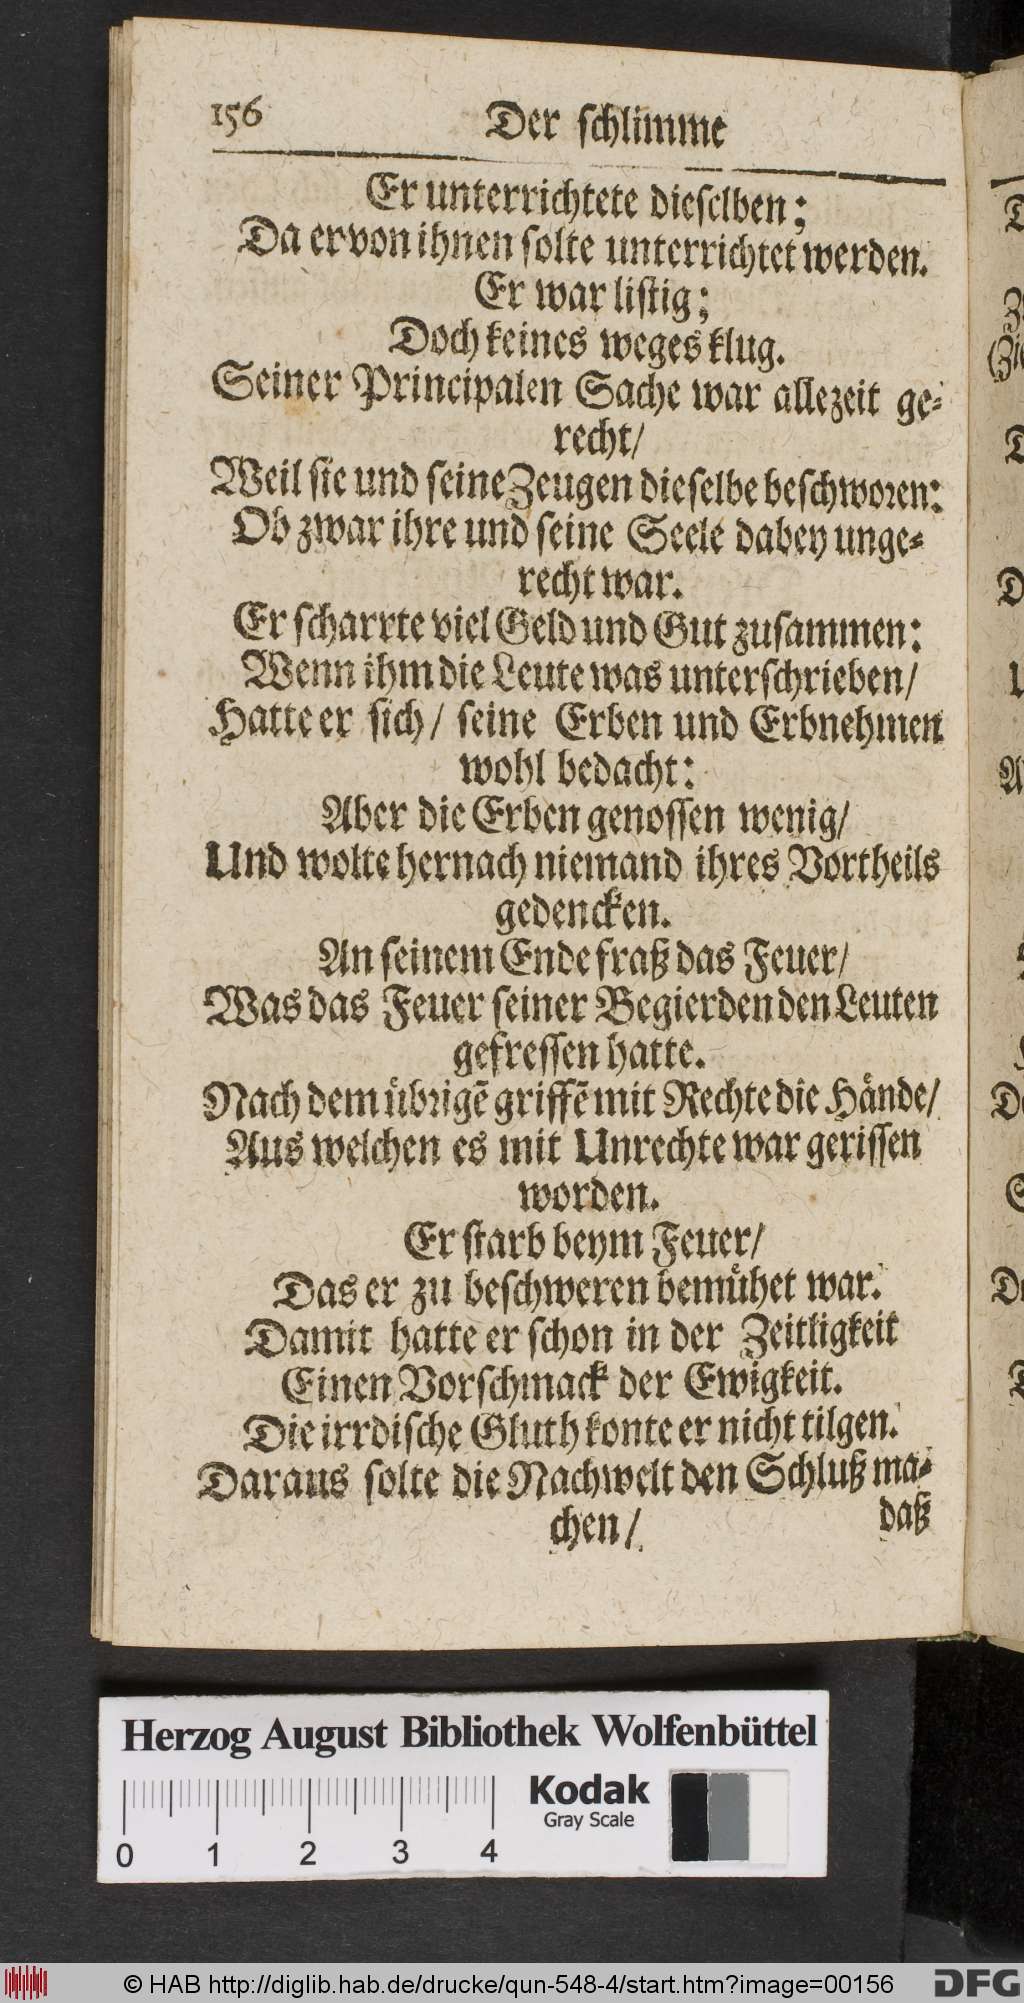 156 Der schlimme
Er unterrichtete dieselben;
Da er von ihnen solte unterrichtet werden.
Er war listig;
Doch keines weges klug.
Seiner Principalen Sache war allezeit ge-
recht/
Weil sie und seine Zeugen dieselbe beschworen:
Ob zwar ihre und seine Seele dabey unge-
recht war.
Er scharrte viel Geld und Gut zusammen:
Wenn ihm die Leute was unterschrieben/
Hatte er sich/ seine Erben und Erbnehmen
wohl bedacht:
Aber die Erben genossen wenig/
Und wolte hernach niemand ihres Vortheils
gedencken.
An seinem Ende fraß das Feuer/
Was das Feuer seiner Begierden den Leuten
gefressen hatte.
Nach dem übrigẽ griffẽ mit Rechte die Hände/
Aus welchen es mit Unrechte war gerissen
worden.
Er starb beym Feuer/
Das er zu beschweren bemühet war.
Damit hatte er schon in der Zeitligkeit
Einen Vorschmack der Ewigkeit.
Die irrdische Gluth konte er nicht tilgen.
Daraus solte die Nachwelt den Schluß ma-
chen/
daß
Herzog August Bibliothek Wolfenbüttel
Kodak
Gray Scale
0 1 2 3 4
© HAB http://diglib.hab.de/drucke/qun-548-4/start.htm?image=00156
DFG